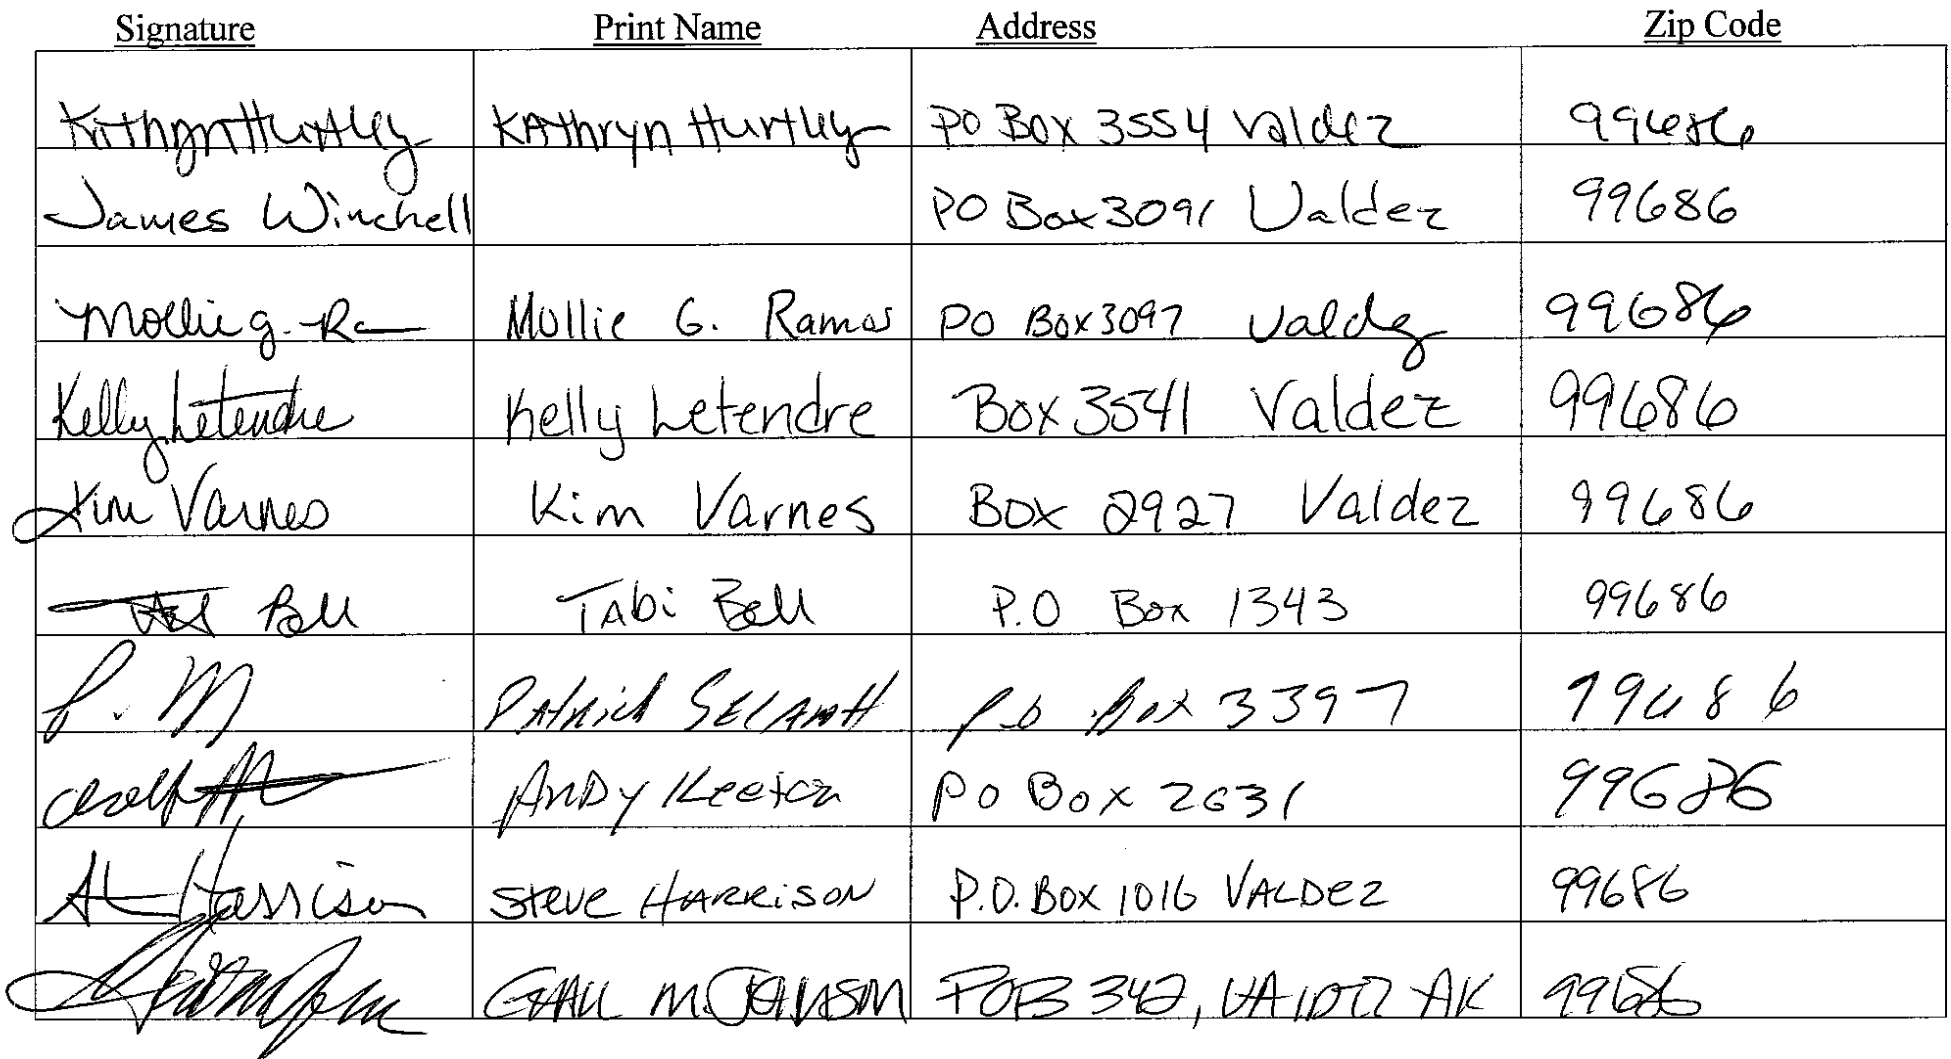 Signature Print Name Address Zip Code
Kathryn Hurtley KAthryn Hurtley PO Box 3554 Valdez 99686
James Winchell PO Box 3091 Valdez 99686
Mollie G. Mollie G. Ramos PO Box 3097 Valdez 99686
Kelly Letendre Kelly Letendre Box 3541 Valdez 99686
Kim Varnes Kim Varnes Box 2927 Valdez 99686
Bell TAbi Bell P.O Box 1343 99686
P. M Patrick P.O Box 3397 99686
ANDy Keeton PO Box 2631 99686
Harrison Steve HARRISON P.O. Box 1016 VALDEZ 99686
M. POB 342, VALDEZ AK 99686